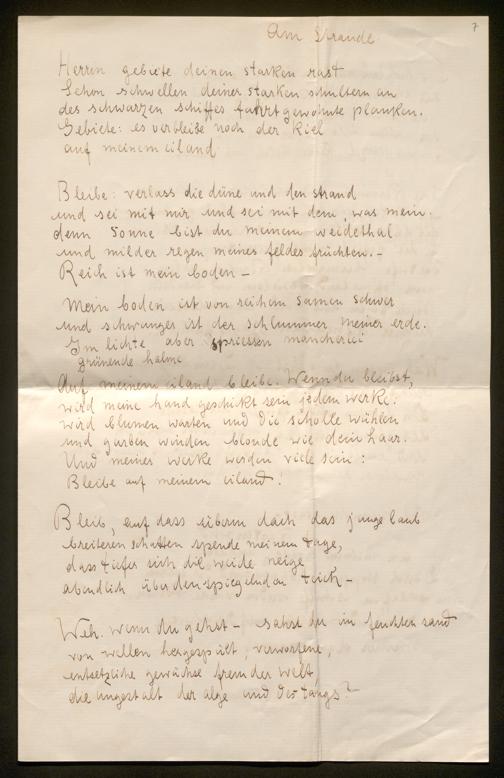 7
Am Strande
Herrin gebiete deinen starken rast
Schon schwellen deiner starken schultern an
des schwarzen schiffes fahrtgewohnte planken.
Gebiete: es verbleibe noch der kiel
auf meinem eiland
Bleibe: verlass die düne und den strand
und sei mit mir und sei mit dem, was mein.
denn Sonne bist du meinem weidethal
und milder regen meines feldes früchten. –
Reich ist mein boden –
Mein boden ist von reichem samen schwer
und schwanger ist der schlummer meiner erde.
Im lichte aber spriessen mancherlei
grünende halme
Auf meinem eiland bleibe. Wenn du bleibst,
wird meine hand geschickt sein jedem werke.
wird blumen warten und die scholle wühlen
und garben winden blonde wie dein haar.
Und meiner werke werden viele sein:
Bleibe auf meinem eiland!
Bleib, auf dass überm dach das junge laub
breiteren schatten spende meinem tage,
dass tiefer sich die weide neige
abendlich über den spiegelnden teich –
Weh. wenn du gehst – sahst du im feuchten sand
von wellen hergespült, verworfene,
entsetzliche gewächse fremder welt,
die ungestalt der alge und des tangs?